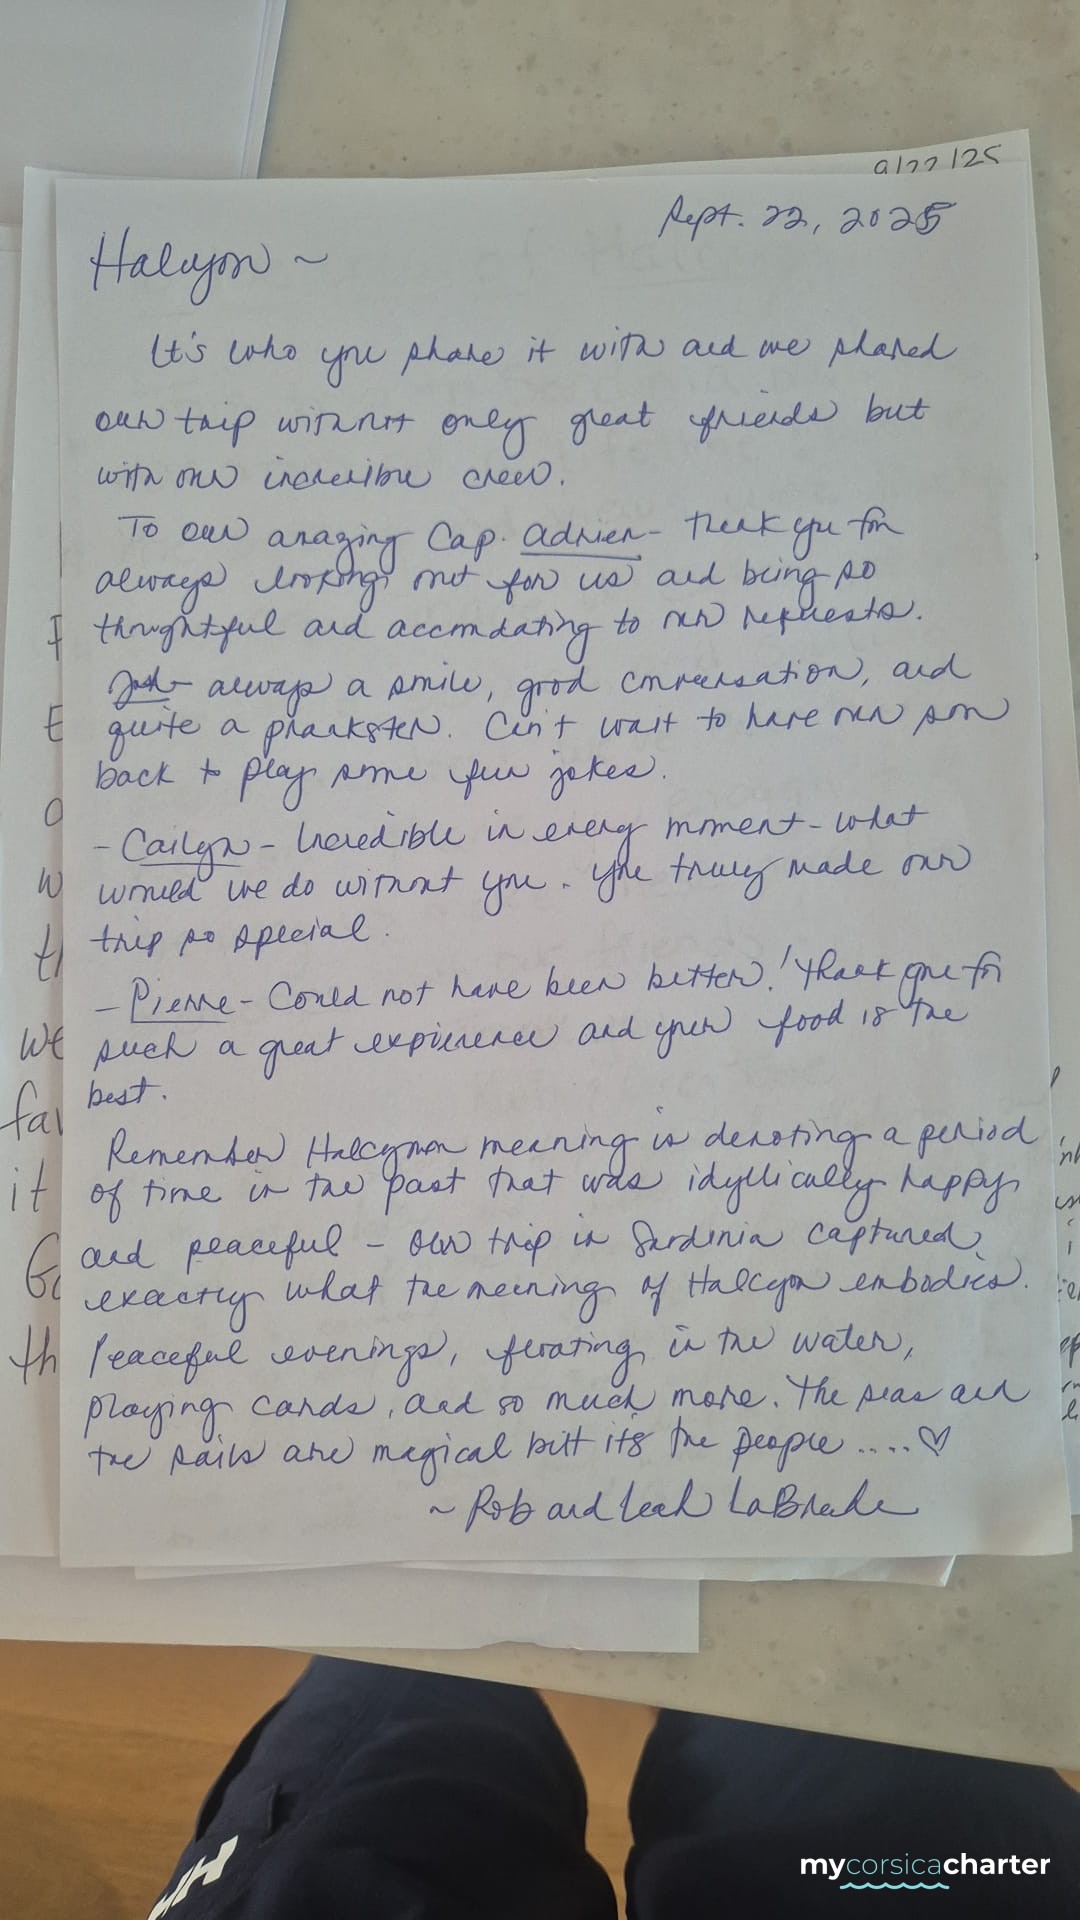 9/22/25
Sept. 22, 2025
Halcyon ~
It's who you share it with and we shared
our trip with not only great friends but
with our incredible crew.
To our amazing Cap. Adrien - thank you for
always looking out for us and being so
thoughtful and accomdating to our requests.
Josh - always a smile, good conversation, and
quite a prankster. Can't wait to have our son
back to play some fun jokes.
- Cailyn - Incredible in every moment - what
would we do without you. You truly made our
trip so special.
- Pierre - Could not have been better! Thank you for
such a great expierence and your food is the
best.
Remember Halcyon meaning is denoting a period
of time in the past that was idyllically happy
and peaceful - our trip in Sardinia captured
exactly what the meening of Halcyon embodies.
Peaceful evenings, floating in the water,
playing cards, and so much more. The seas and
the sails are magical but it's the people .... ♡
~ Rob and Leah LaBrecke
HH
mycorsicacharter